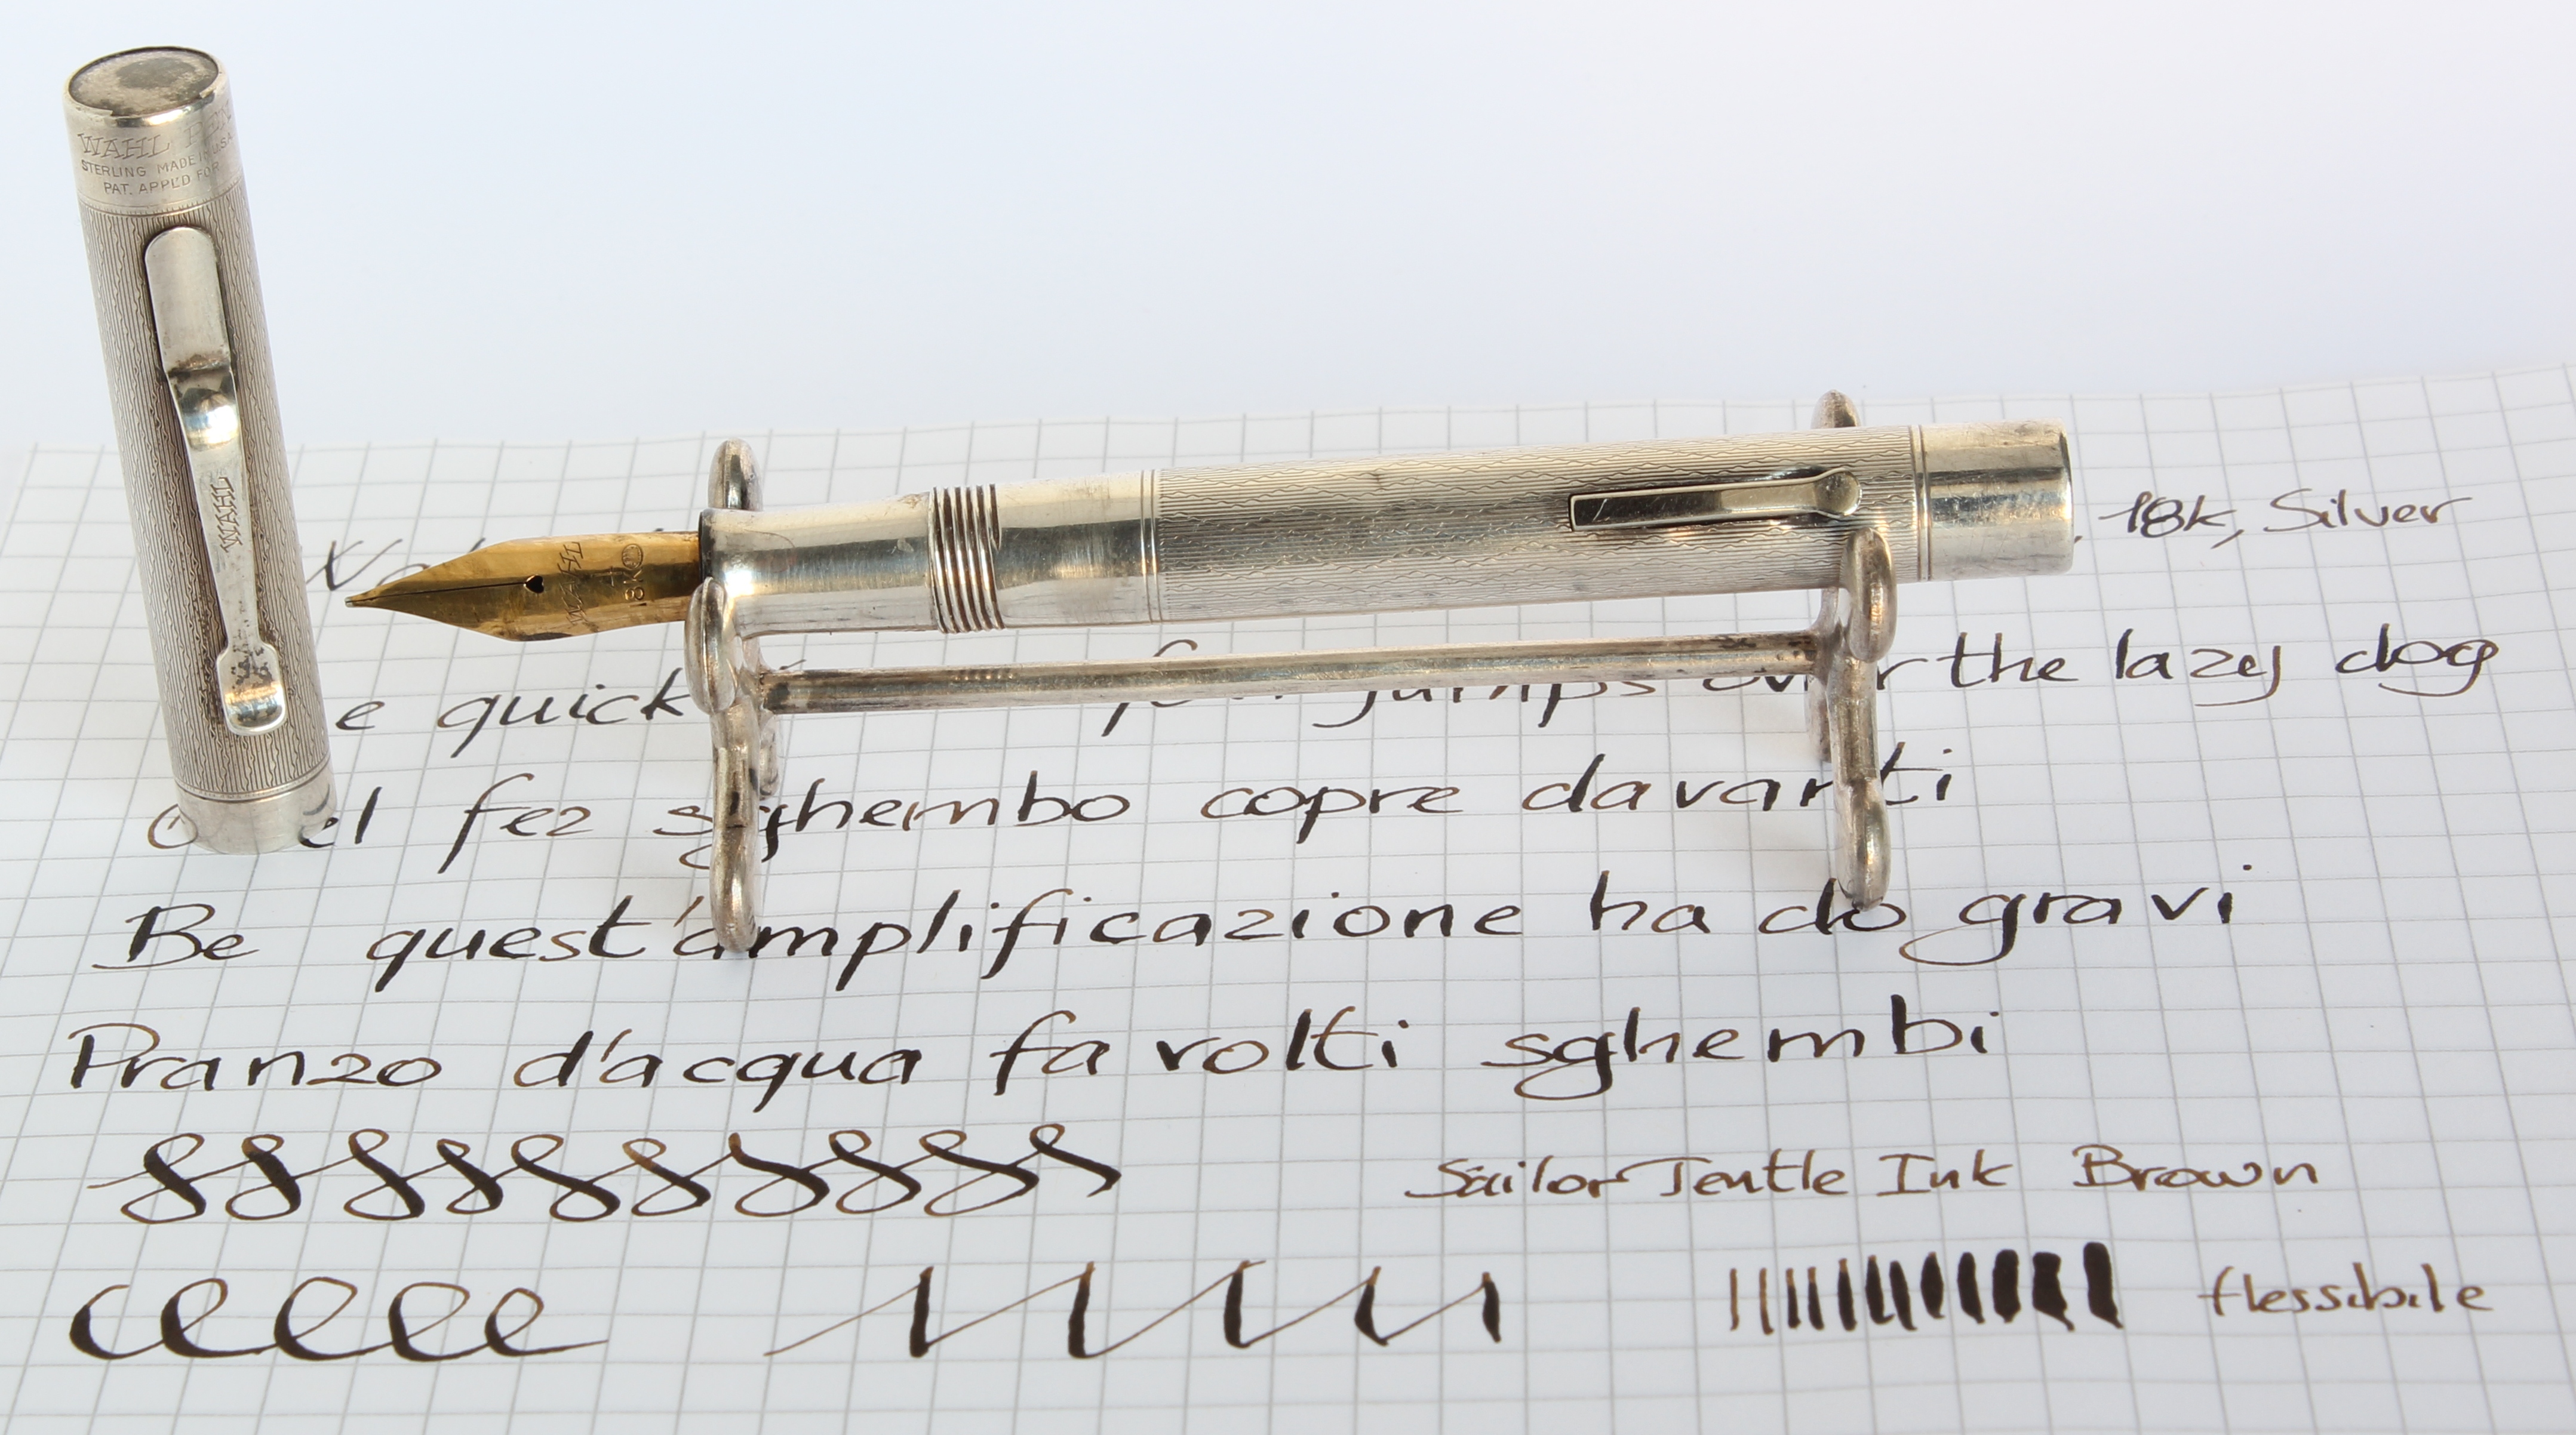 WAHL PEN
STERLING MADE IN U.S.A.
PAT. APPL'D FOR
WAHL
18K
18k, Silver
quick jumps over the lazy dog
el fez sghembo copre davanti
Be quest'amplificazione ha do gravi
Pranzo d'acqua fa volti sghembi
Sailor Jentle Ink Brown
flessibile